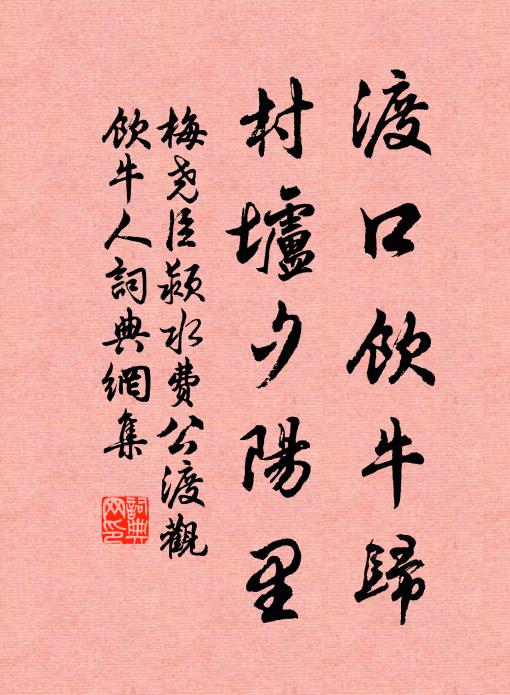 渡口飲牛歸
村壚夕陽里
梅堯臣潁水費公渡觀
飲牛人詞典網集
詞典网印